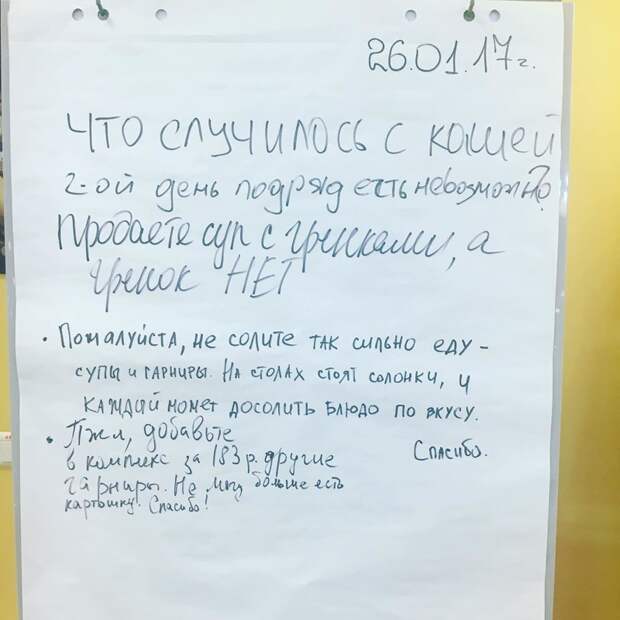 26.01.17г.
ЧТО СЛУЧИЛОСЬ С КАШЕЙ
2-ой день подряд есть невозможно?
Продаете суп с гренками, а
гренок НЕТ
• Пожалуйста, не солите так сильно еду -
супы и гарниры. На столах стоят солонки, и
каждый может досолить блюдо по вкусу.
Спасибо.
• Пжл, добавьте
в комплекс за 183 р. другие
гарниры. Не могу больше есть
картошку! Спасибо!